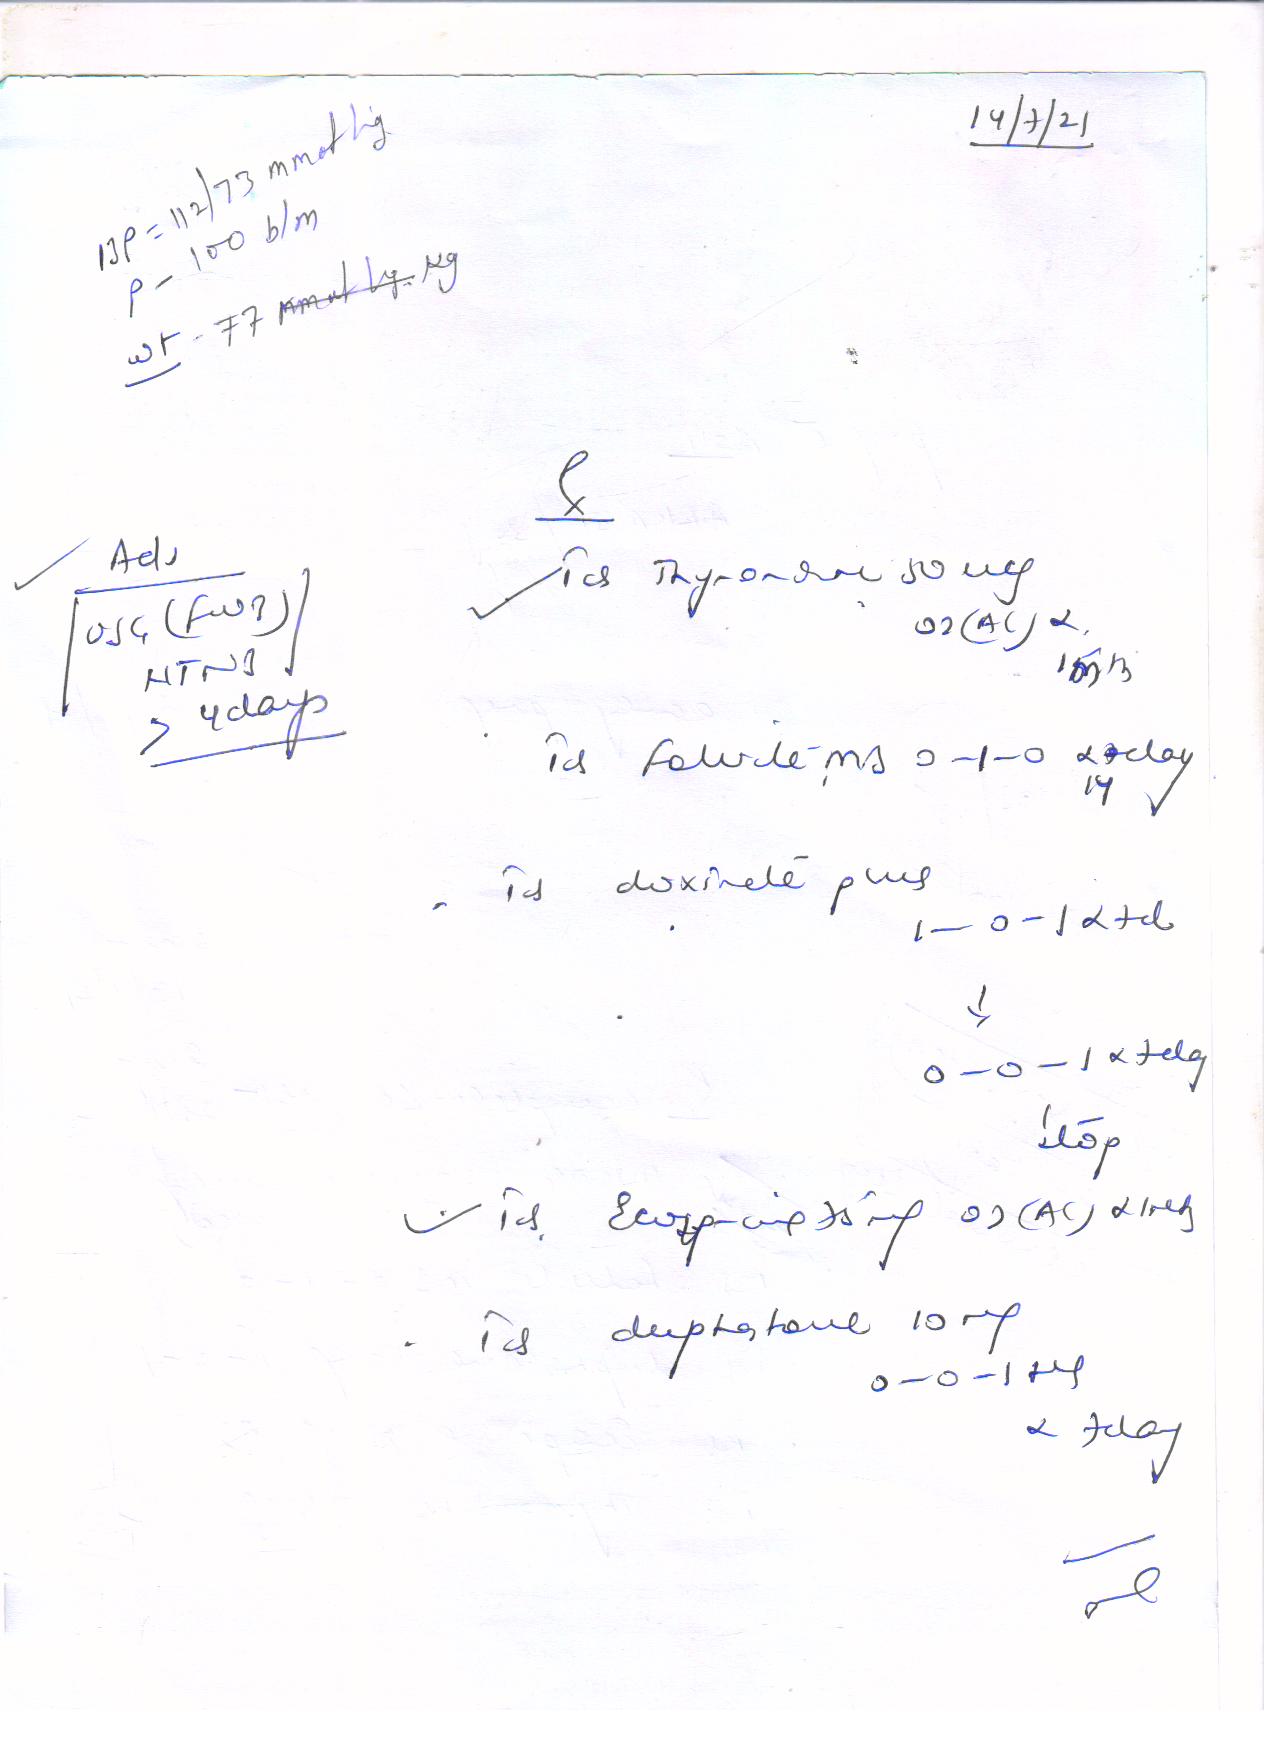 14/7/21
BP = 112/73 mmothg
P - 100 b/m
wt - 77 kg
Rx
Adv
USG (FWB)
NTNB
> 4 days
Tab Thyronorm 50 ug
OD (AC) x
1 mth
Tab Folvite-MB 0-1-0 x day
14
Tab doxinate plus
1-0-1 x 7d
↓
0-0-1 x 7day
stop
Tab Ecosprin 75 mg OD (AC) x 1mth
Tab duphaston 10 mg
0-0-1
x 7day